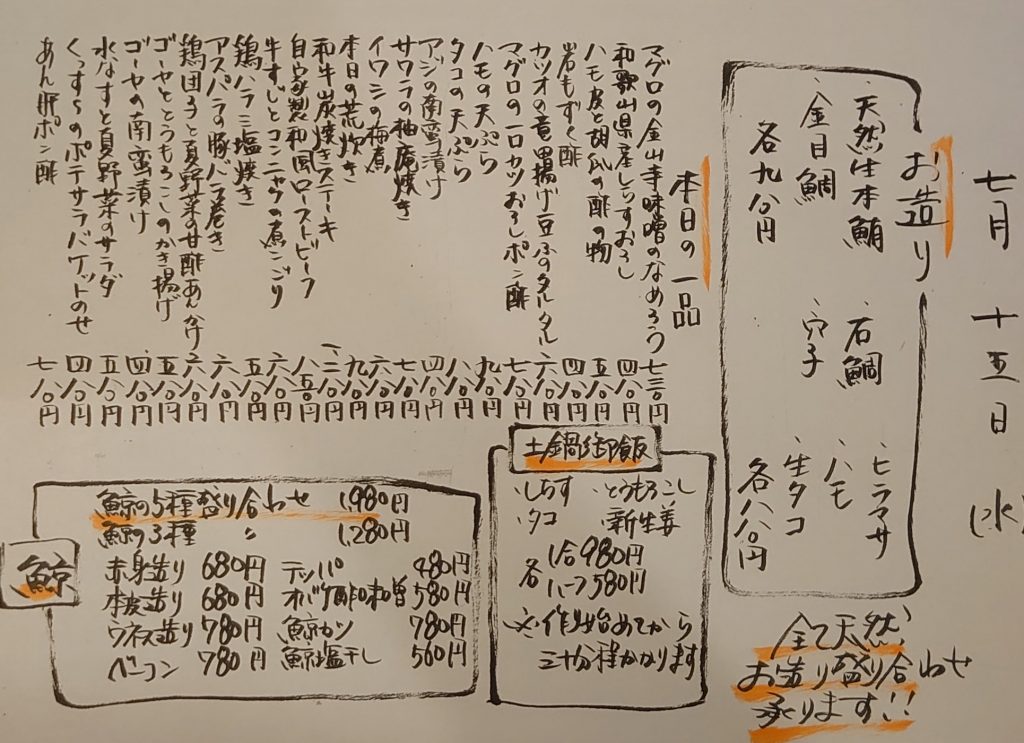 七月十五日(水)
お造り
天然生本鮪 石鯛 ヒラマサ
、金目鯛 、穴子 、ハモ
、生タコ
各九八〇円 各八八〇円
全て天然
お造り盛り合わせ
承ります!!
本日の一品
マグロの金山寺味噌のなめろう 七三〇円
和歌山県産しらすおろし 四八〇円
ハモ皮と胡瓜の酢の物 五八〇円
岩もずく酢 四八〇円
カツオの竜田揚げ豆ふのタルタル 六八〇円
マグロの一口カツおろしポン酢 七八〇円
ハモの天ぷら 九八〇円
タコの天ぷら 八八〇円
アジの南蛮漬け 四八〇円
サワラの柚庵焼き 七八〇円
イワシの梅煮 六八〇円
本日の荒炊き 九八〇円
和牛炭焼きステーキ 一、二八〇円
自家製和風ローストビーフ 八五〇円
牛すじとコンニャクの煮こごり 六八〇円
鶏ハラミ塩焼き 五八〇円
アスパラの豚バラ巻き 六八〇円
鶏団子と夏野菜の甘酢あんかけ 六八〇円
ゴーヤととうもろこしのかき揚げ 五八〇円
ゴーヤの南蛮漬け 四八〇円
水なすと夏野菜のサラダ 五八〇円
ポテサラバケットのせ 四八〇円
あん肝ポン酢 七八〇円
土鍋御飯
、しらす 、とうもろこし
、タコ 、新生姜
各 1合980円
ハーフ580円
※作り始めてから
三十分程かかります
鯨
鯨の5種盛り合わせ 1,980円
鯨の3種 〃 1,280円
赤身造り 680円 テッパ 480円
本皮造り 680円 オバケ酢味噌 580円
ウネス造り 780円 鯨カツ 780円
ベーコン 780円 鯨塩干し 560円